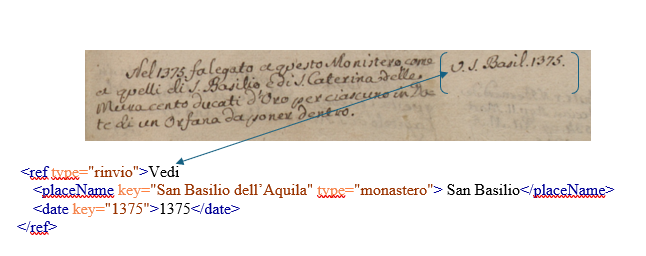 Nel 1375 fa legato a questo Monistero, come
a quelli di S. Basilio e di S. Caterina delle
Mura cento ducati d'Oro per ciascuno in Do-
te di un Orfana da poner dentro.
V. S. Basil. 1375.
<ref type="rinvio">Vedi
<placeName key="San Basilio dell'Aquila" type="monastero"> San Basilio</placeName>
<date key="1375">1375</date>
</ref>